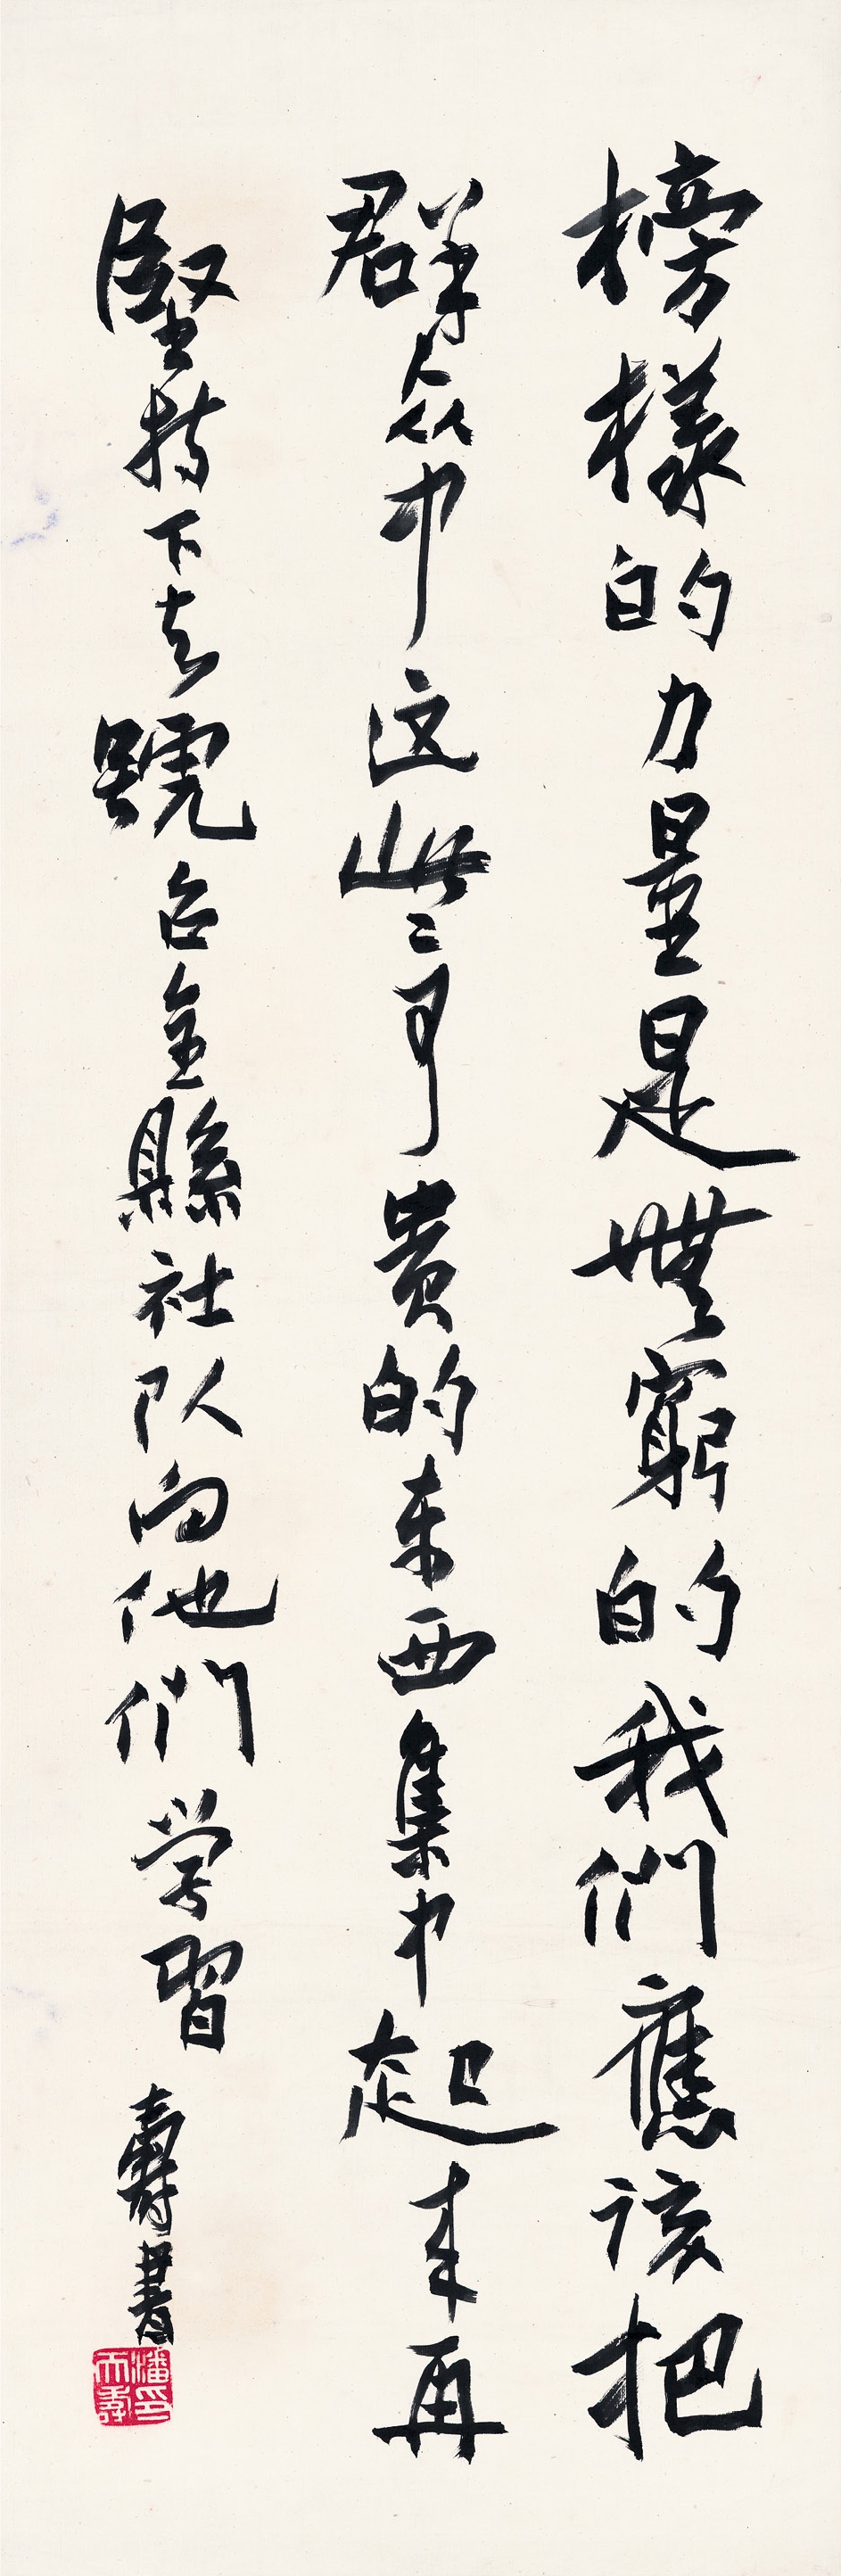 榜樣的力量是無窮的我們應該把
群众中这些可贵的东西集中起来再
堅持下去號召全縣社队向他們学習
壽書
潘天壽印